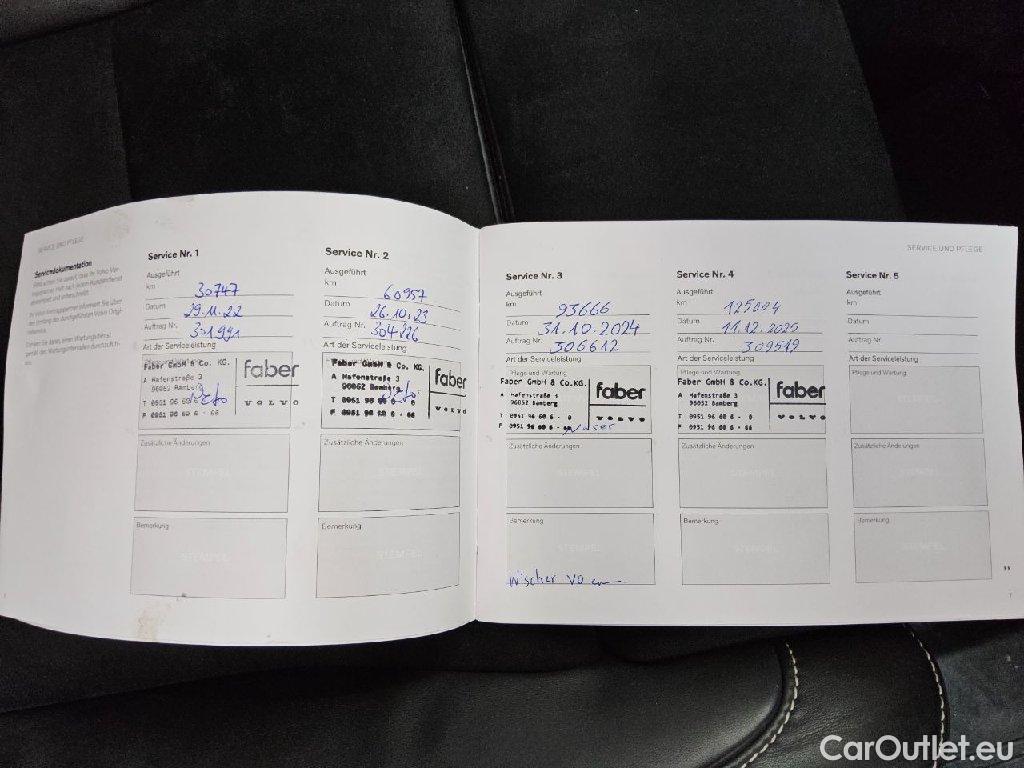 SERVICE UND PFLEGE
Servicedokumentation
Service Nr. 1
Ausgeführt
km 30747
Datum 29.11.22
Auftrag Nr. 301991
Art der Serviceleistung
Faber GmbH & Co. KG.
A Hafenstraße 3
96052 Bamberg
T 0951 96 60 6 - 0
F 0951 96 60 6 - 66
faber
VOLVO
Zusätzliche Änderungen
STEMPEL
Bemerkung
STEMPEL
Service Nr. 2
Ausgeführt
km 60957
Datum 26.10.23
Auftrag Nr. 304226
Art der Serviceleistung
Faber GmbH & Co. KG.
A Hafenstraße 3
96052 Bamberg
T 0951 96 60 6 - 0
F 0951 96 60 6 - 66
faber
VOLVO
Zusätzliche Änderungen
STEMPEL
Bemerkung
STEMPEL
SERVICE UND PFLEGE
Service Nr. 3
Ausgeführt
km 93666
Datum 31.10.2024
Auftrag Nr. 306612
Art der Serviceleistung
Pflege und Wartung
Faber GmbH & Co. KG.
A Hafenstraße 3
96052 Bamberg
T 0951 96 60 6 - 0
F 0951 96 60 6 - 66
faber
VOLVO
Zusätzliche Änderungen
STEMPEL
Bemerkung
STEMPEL
Wischer
Service Nr. 4
Ausgeführt
km 125004
Datum 11.12.2025
Auftrag Nr. 309519
Art der Serviceleistung
Pflege und Wartung
Faber GmbH & Co. KG.
A Hafenstraße 3
96052 Bamberg
T 0951 96 60 6 - 0
F 0951 96 60 6 - 66
faber
VOLVO
Zusätzliche Änderungen
STEMPEL
Bemerkung
STEMPEL
Service Nr. 5
Ausgeführt
km
Datum
Auftrag Nr.
Art der Serviceleistung
Pflege und Wartung
STEMPEL
Zusätzliche Änderungen
STEMPEL
Bemerkung
STEMPEL
CarOutlet.eu